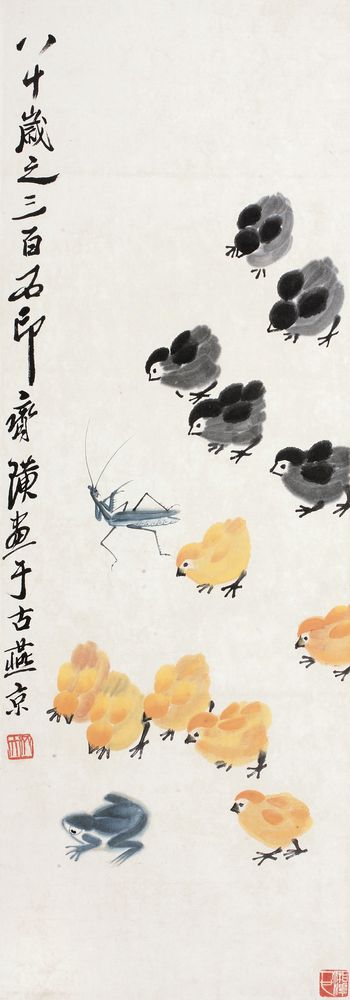 八十歲之三百石印齋璜畫于古燕京